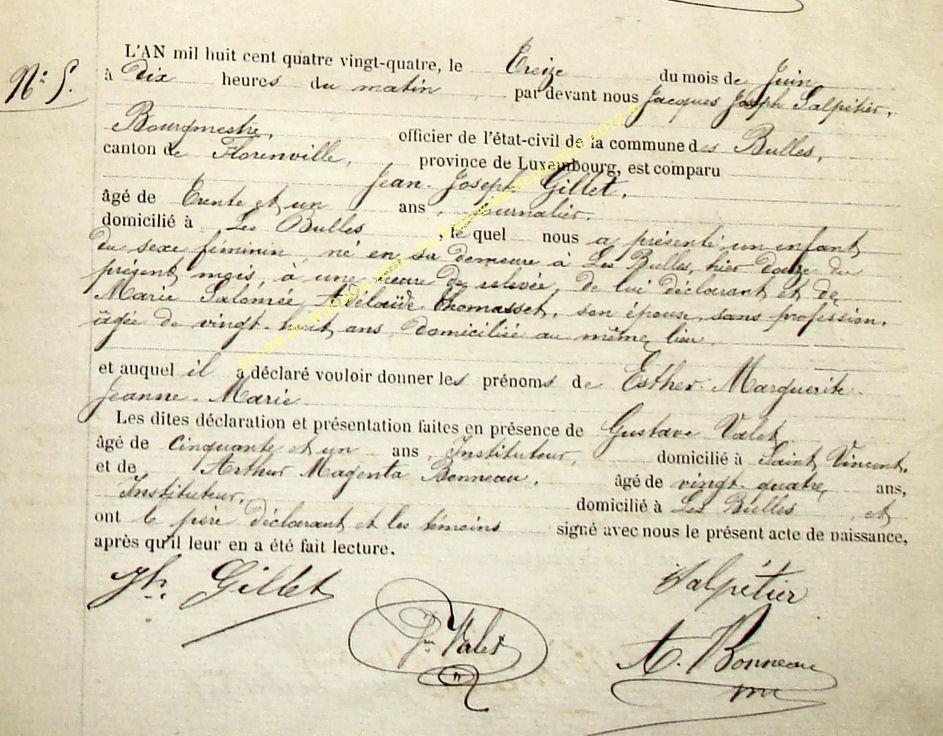 N.° 5.
L'AN mil huit cent quatre vingt-quatre, le Treize du mois de Juin
à Dix heures du matin par devant nous Jacques Joseph Salpétier,
Bourgmestre, officier de l'état-civil de la commune des Bulles,
canton de Florenville, province de Luxembourg, est comparu
Jean-Joseph Gillet,
âgé de Trente et un ans, journalier,
domicilié à Les Bulles, le quel nous a présenté un enfant
du sexe féminin né en sa demeure à Les Bulles, hier douze du
présent mois, à une heure de relevée, de lui déclarant et de
Marie Salomée Adélaïde Thomasset, son épouse, sans profession,
âgée de vingt-huit ans, domiciliée au même lieu
et auquel il a déclaré vouloir donner les prénoms de Esther-Marguerite
Jeanne-Marie
Les dites déclaration et présentation faites en présence de Gustave Valet
âgé de Cinquante et un ans, Instituteur, domicilié à Saint Vincent,
et de Arthur Magenta Bonneau, âgé de vingt-quatre ans,
Instituteur, domicilié à Les Bulles, et
ont le père déclarant et les témoins signé avec nous le présent acte de naissance,
après qu'il leur en a été fait lecture.
Jh. Gillet
Salpétier
Valet
A. Bonneau